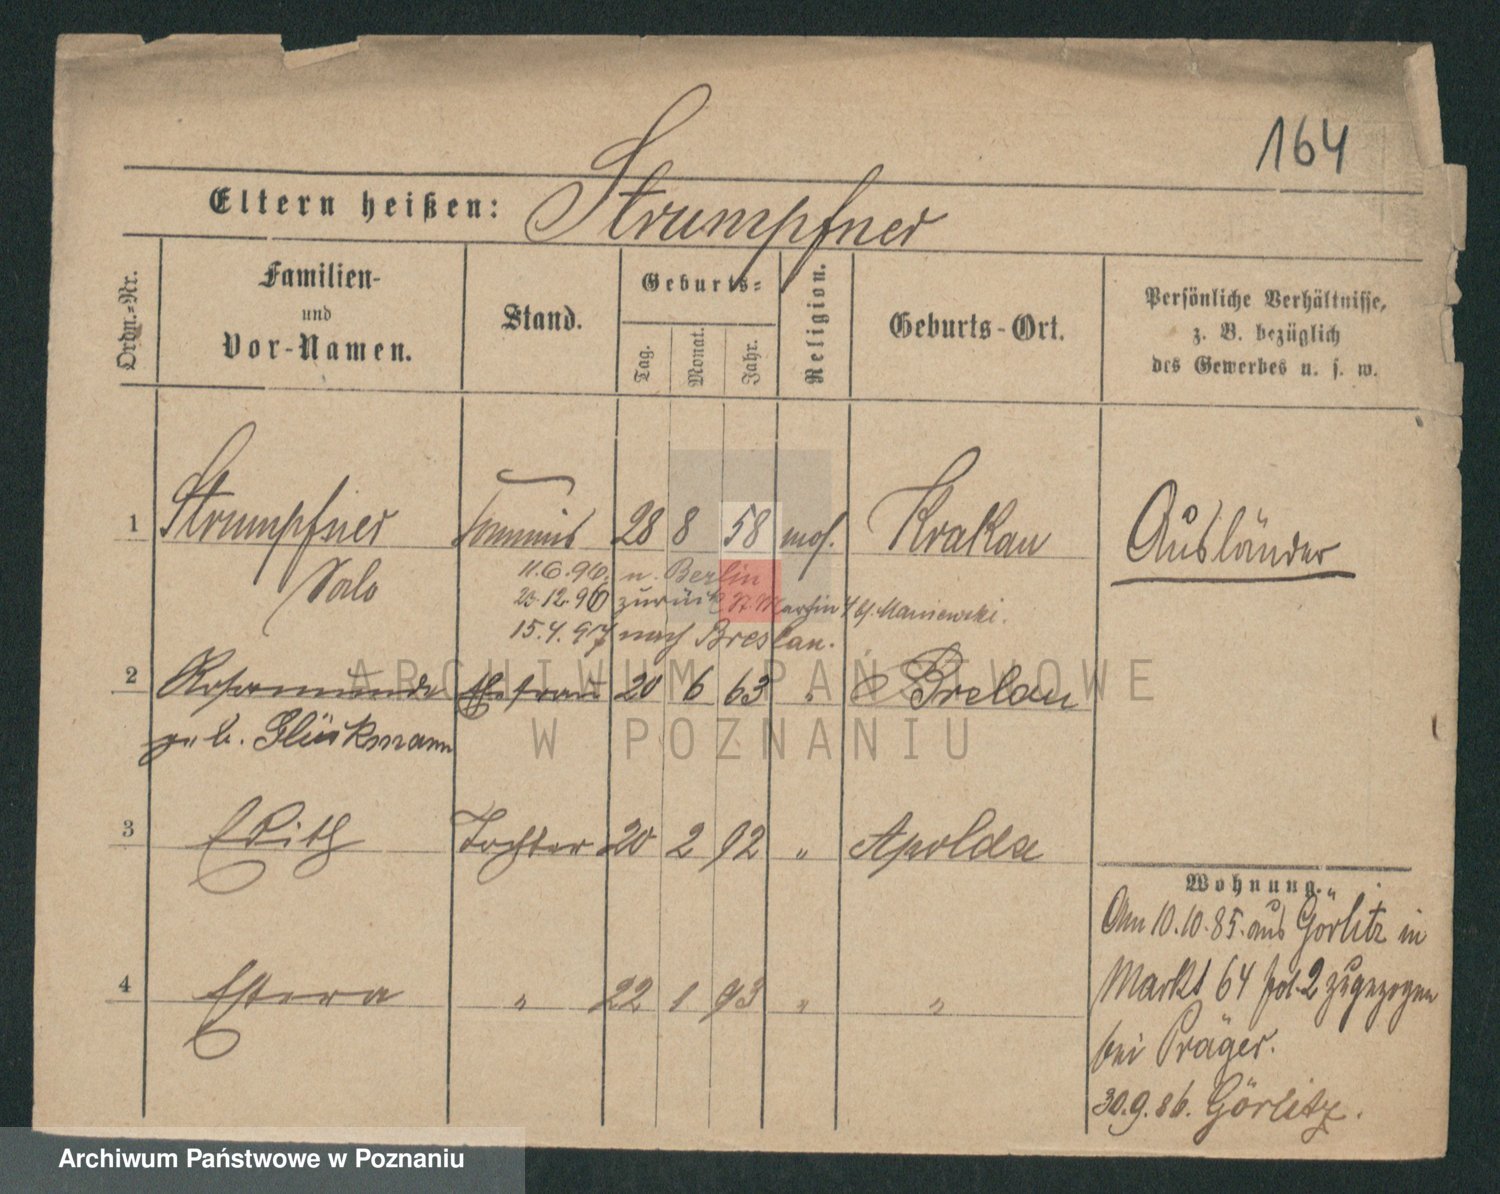 164
Eltern heißen: Strumpfner
Ordn.-Nr.
Familien-
und
Vor-Namen.
Stand.
Geburts-
Tag.
Monat.
Jahr.
Religion.
Geburts-Ort.
Persönliche Verhältnisse,
z. B. bezüglich
des Gewerbes u. s. w.
1 Strumpfner Kommis 28 8 58 mos. Krakau Ausländer
Salo
11.6.96. n. Berlin
23.12.96 zurück St. Martin
15.4.97 nach Breslau.
2 Rosamunde Ehefrau 20 6 63 " Breslau
geb. Glückmann
3 Edith Tochter 20 2 92 " Apolda
Wohnung.
4 Estera " 22 1 93 " "
Am 10.10.85. aus Görlitz in
Markt 64 pol. 2 zugezogen
bei Präger.
30.9.86. Görlitz.
ARCHIWUM PAŃSTWOWE
W POZNANIU
Archiwum Państwowe w Poznaniu